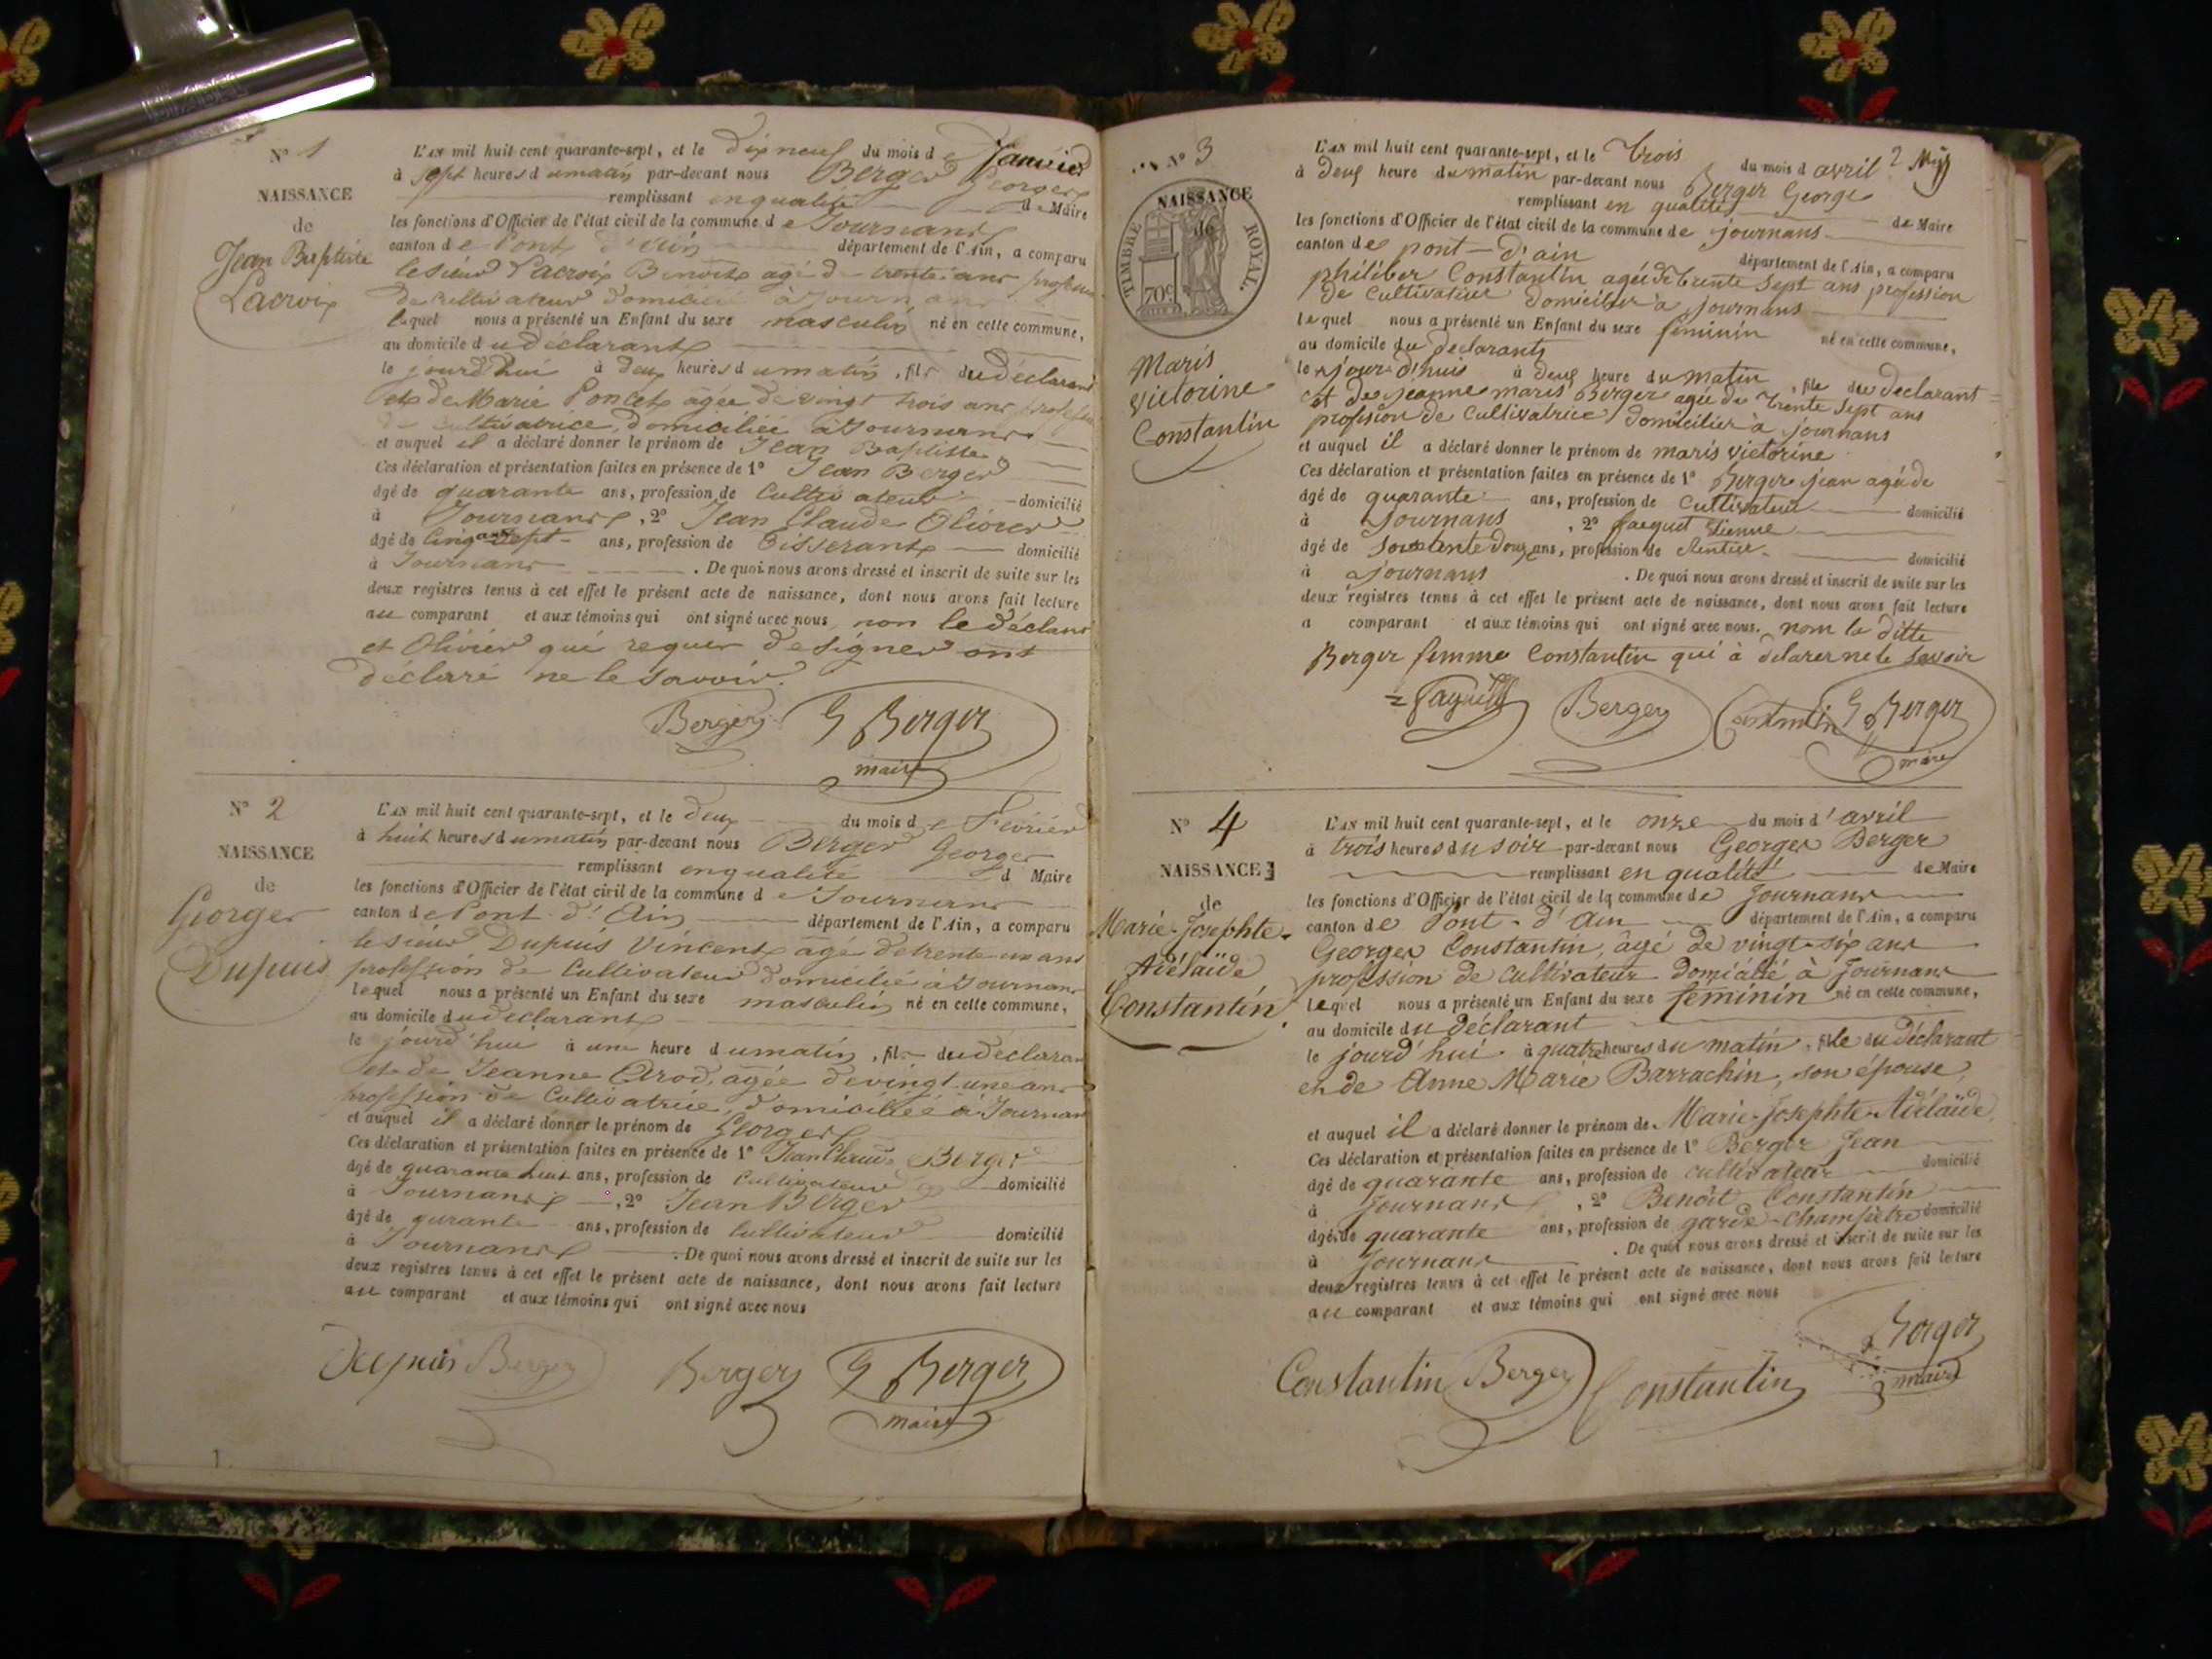 N° 1
NAISSANCE
de
Jean Baptiste
Lacroix
L'AN mil huit cent quarante-sept, et le dix neuf du mois de Janvier
à sept heures du matin par-devant nous Berger Georges
remplissant en qualité de Maire
les fonctions d'Officier de l'état civil de la commune de Journans
canton de Pont d'Ain département de l'Ain, a comparu
le sieur Lacroix Benoit agé de trente ans
de cultivateur domicilié à Journans
lequel nous a présenté un Enfant du sexe masculin né en cette commune,
au domicile du déclarant
le jourd'hui à deux heures du matin, fils du déclarant
et de Marie Poncet agée de vingt trois ans
de cultivatrice, domiciliée à Journans
et auquel il a déclaré donner le prénom de Jean Baptiste
Ces déclaration et présentation faites en présence de 1° Jean Berger
âgé de quarante ans, profession de Cultivateur domicilié
à Journans, 2° Jean Claude Olivier
âgé de ans, profession de Tisserant domicilié
à Journans . De quoi nous avons dressé et inscrit de suite sur les
deux registres tenus à cet effet le présent acte de naissance, dont nous avons fait lecture
au comparant et aux témoins qui ont signé avec nous non le déclarant
et Olivier qui requer de signer ont
déclaré ne le savoir.
Berger G Berger
maire
N° 2
NAISSANCE
de
Georges
Dupuis
L'AN mil huit cent quarante-sept, et le deux du mois de Février
à huit heures du matin par-devant nous Berger Georges
remplissant en qualité d Maire
les fonctions d'Officier de l'état civil de la commune de Journans
canton de Pont d'Ain département de l'Ain, a comparu
le sieur Dupuis Vincent agé de trente un ans
profession de Cultivateur domicilié à Journans
lequel nous a présenté un Enfant du sexe masculin né en cette commune,
au domicile du déclarant
le jourd'hui à une heure du matin, fils du déclarant
et de Jeanne Arod, agée de vingt une ans
profession de Cultivatrice, domiciliée à Journans
et auquel il a déclaré donner le prénom de Georges
Ces déclaration et présentation faites en présence de 1° Jean Claude Berger
âgé de quarante huit ans, profession de Cultivateur domicilié
à Journans, 2° Jean Berger
âgé de qurante ans, profession de Cultivateur domicilié
à Journans . De quoi nous avons dressé et inscrit de suite sur les
deux registres tenus à cet effet le présent acte de naissance, dont nous avons fait lecture
au comparant et aux témoins qui ont signé avec nous
Dupuis Berger Berger G Berger
maire
N° 3
NAISSANCE
de
TIMBRE ROYAL
70c
Maris
Victorine
Constantin
L'AN mil huit cent quarante-sept, et le trois du mois d avril
à deux heure du matin par-devant nous Berger George
remplissant en qualités de Maire
les fonctions d'Officier de l'état civil de la commune de journans
canton de pont-d'ain département de l'Ain, a comparu
philiber Constantin agée de trente sept ans profession
de Cultivatieur domicilier à journans
lequel nous a présenté un Enfant du sexe féminin né en cette commune,
au domicile du declarants
le jour d'huis à deux heure du matin, file du declarant
et de jeanne maris Berger agée de trente sept ans
profesion de Cultivatrice domicilier à journans
et auquel il a déclaré donner le prénom de maris victorine
Ces déclaration et présentation faites en présence de 1° Berger jean agé de
âgé de quarante ans, profession de Cultivateur domicilié
à Journans, 2° faquet Etienne
âgé de soixante douze ans, profession de Rentier domicilié
à a journans . De quoi nous avons dressé et inscrit de suite sur les
deux registres tenus à cet effet le présent acte de naissance, dont nous avons fait lecture
a comparant et aux témoins qui ont signé avec nous. nom la ditte
Berger femme Constantin qui à délarer ne le savoir
Berger Constantin G Berger
maire
N° 4
NAISSANCE
de
Marie-Josephte-
Adélaïde
Constantin
L'AN mil huit cent quarante-sept, et le onze du mois d'avril
à trois heures du soir par-devant nous Georges Berger
remplissant en qualité de Maire
les fonctions d'Officier de l'état civil de la commune de Journans
canton de Pont-d'Ain département de l'Ain, a comparu
Georges Constantin, âgé de vingt-six ans
profession de cultivateur domicilié à Journans
lequel nous a présenté un Enfant du sexe féminin né en cette commune,
au domicile du déclarant
le jourd'hui à quatre heures du matin, fille du déclarant
et de Anne Marie Barrachin, son épouse,
et auquel il a déclaré donner le prénom de Marie-Josephte-Adélaïde
Ces déclaration et présentation faites en présence de 1° Berger Jean
âgé de quarante ans, profession de cultivateur domicilié
à Journans, 2° Benoît Constantin
âgé de quarante ans, profession de garde-champêtre domicilié
à Journans . De quoi nous avons dressé et inscrit de suite sur les
deux registres tenus à cet effet le présent acte de naissance, dont nous avons fait lecture
au comparant et aux témoins qui ont signé avec nous
Constantin Berger Constantin Berger
maire